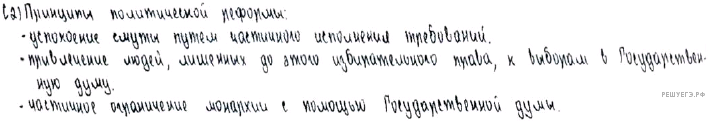 С2) Принципы политической реформы:
- успокоение смуты путем частичного исполнения требований.
- привлечение людей, лишенных до этого избирательного права, к выборам в Государствен-
ную думу.
- частичное ограничение монархии с помощью Государственной думы.
РЕШУЕГЭ.РФ